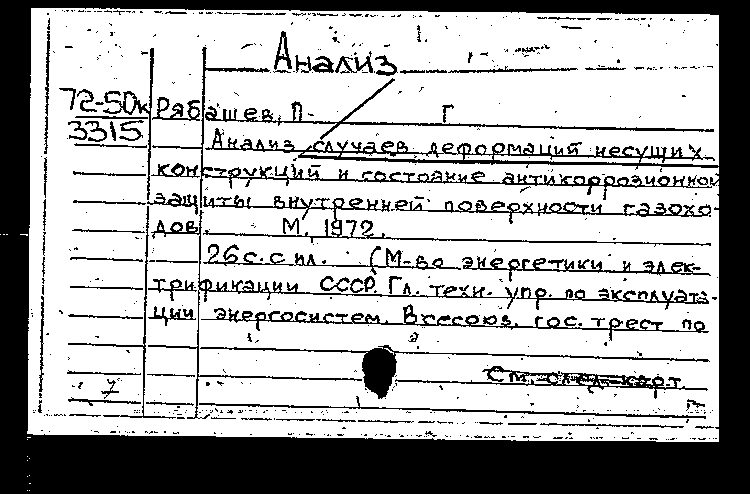 Анализ
72-50к
3315
Рябашев, П. Г
Анализ случаев деформаций несущих
конструкций и состояние антикоррозионной
защиты внутренней поверхности газохо-
дов. М., 1972.
26 с. с ил. (М-во энергетики и элек-
трификации СССР. Гл. техн. упр. по эксплуата-
ции энергосистем. Всесоюз. гос. трест по
См. след. карт.
7